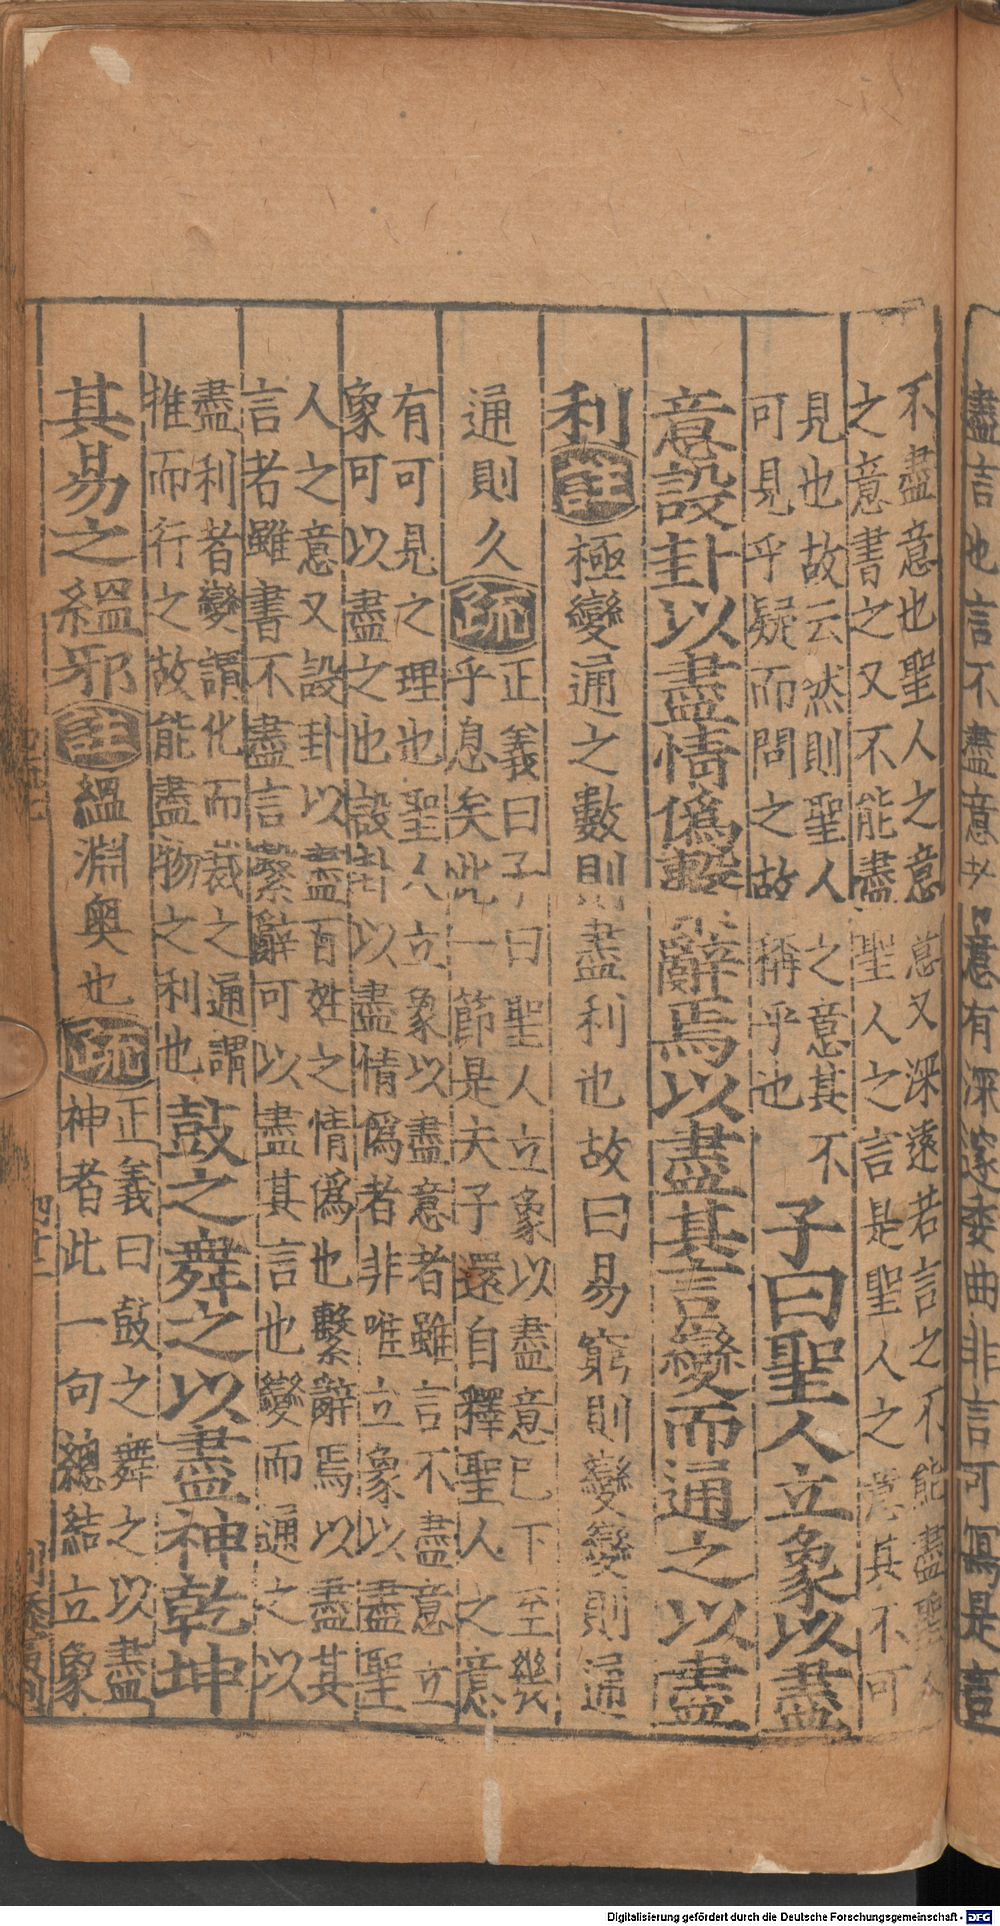 盡言也言不盡意者意有深邃委曲非言可寫是言
不盡意也聖人之意意又深遠若言之不能盡聖人
之意書之又不能盡聖人之言是聖人之意其不可
見也故云然則聖人之意其不
可見乎疑而問之故稱乎也
子曰聖人立象以盡
意設卦以盡情偽繫辭焉以盡其言變而通之以盡
利註極變通之數則盡利也故曰易窮則變變則通
通則久疏
正義曰子曰聖人立象以盡意已下至幾
乎息矣此一節是夫子還自釋聖人之意
有可見之理也聖人立象以盡意者雖言不盡意立
象可以盡之也設卦以盡情偽者非唯立象以盡聖
人之意又設卦以盡百姓之情偽也繫辭焉以盡其
言者雖書不盡言繫辭可以盡其言也變而通之以
盡利者變謂化而裁之通謂
推而行之故能盡物之利也
鼓之舞之以盡神乾坤
其易之縕邪註縕淵奧也疏
正義曰鼓之舞之以盡
神者此一句總結立象
Digitalisierung gefördert durch die Deutsche Forschungsgemeinschaft - DFG